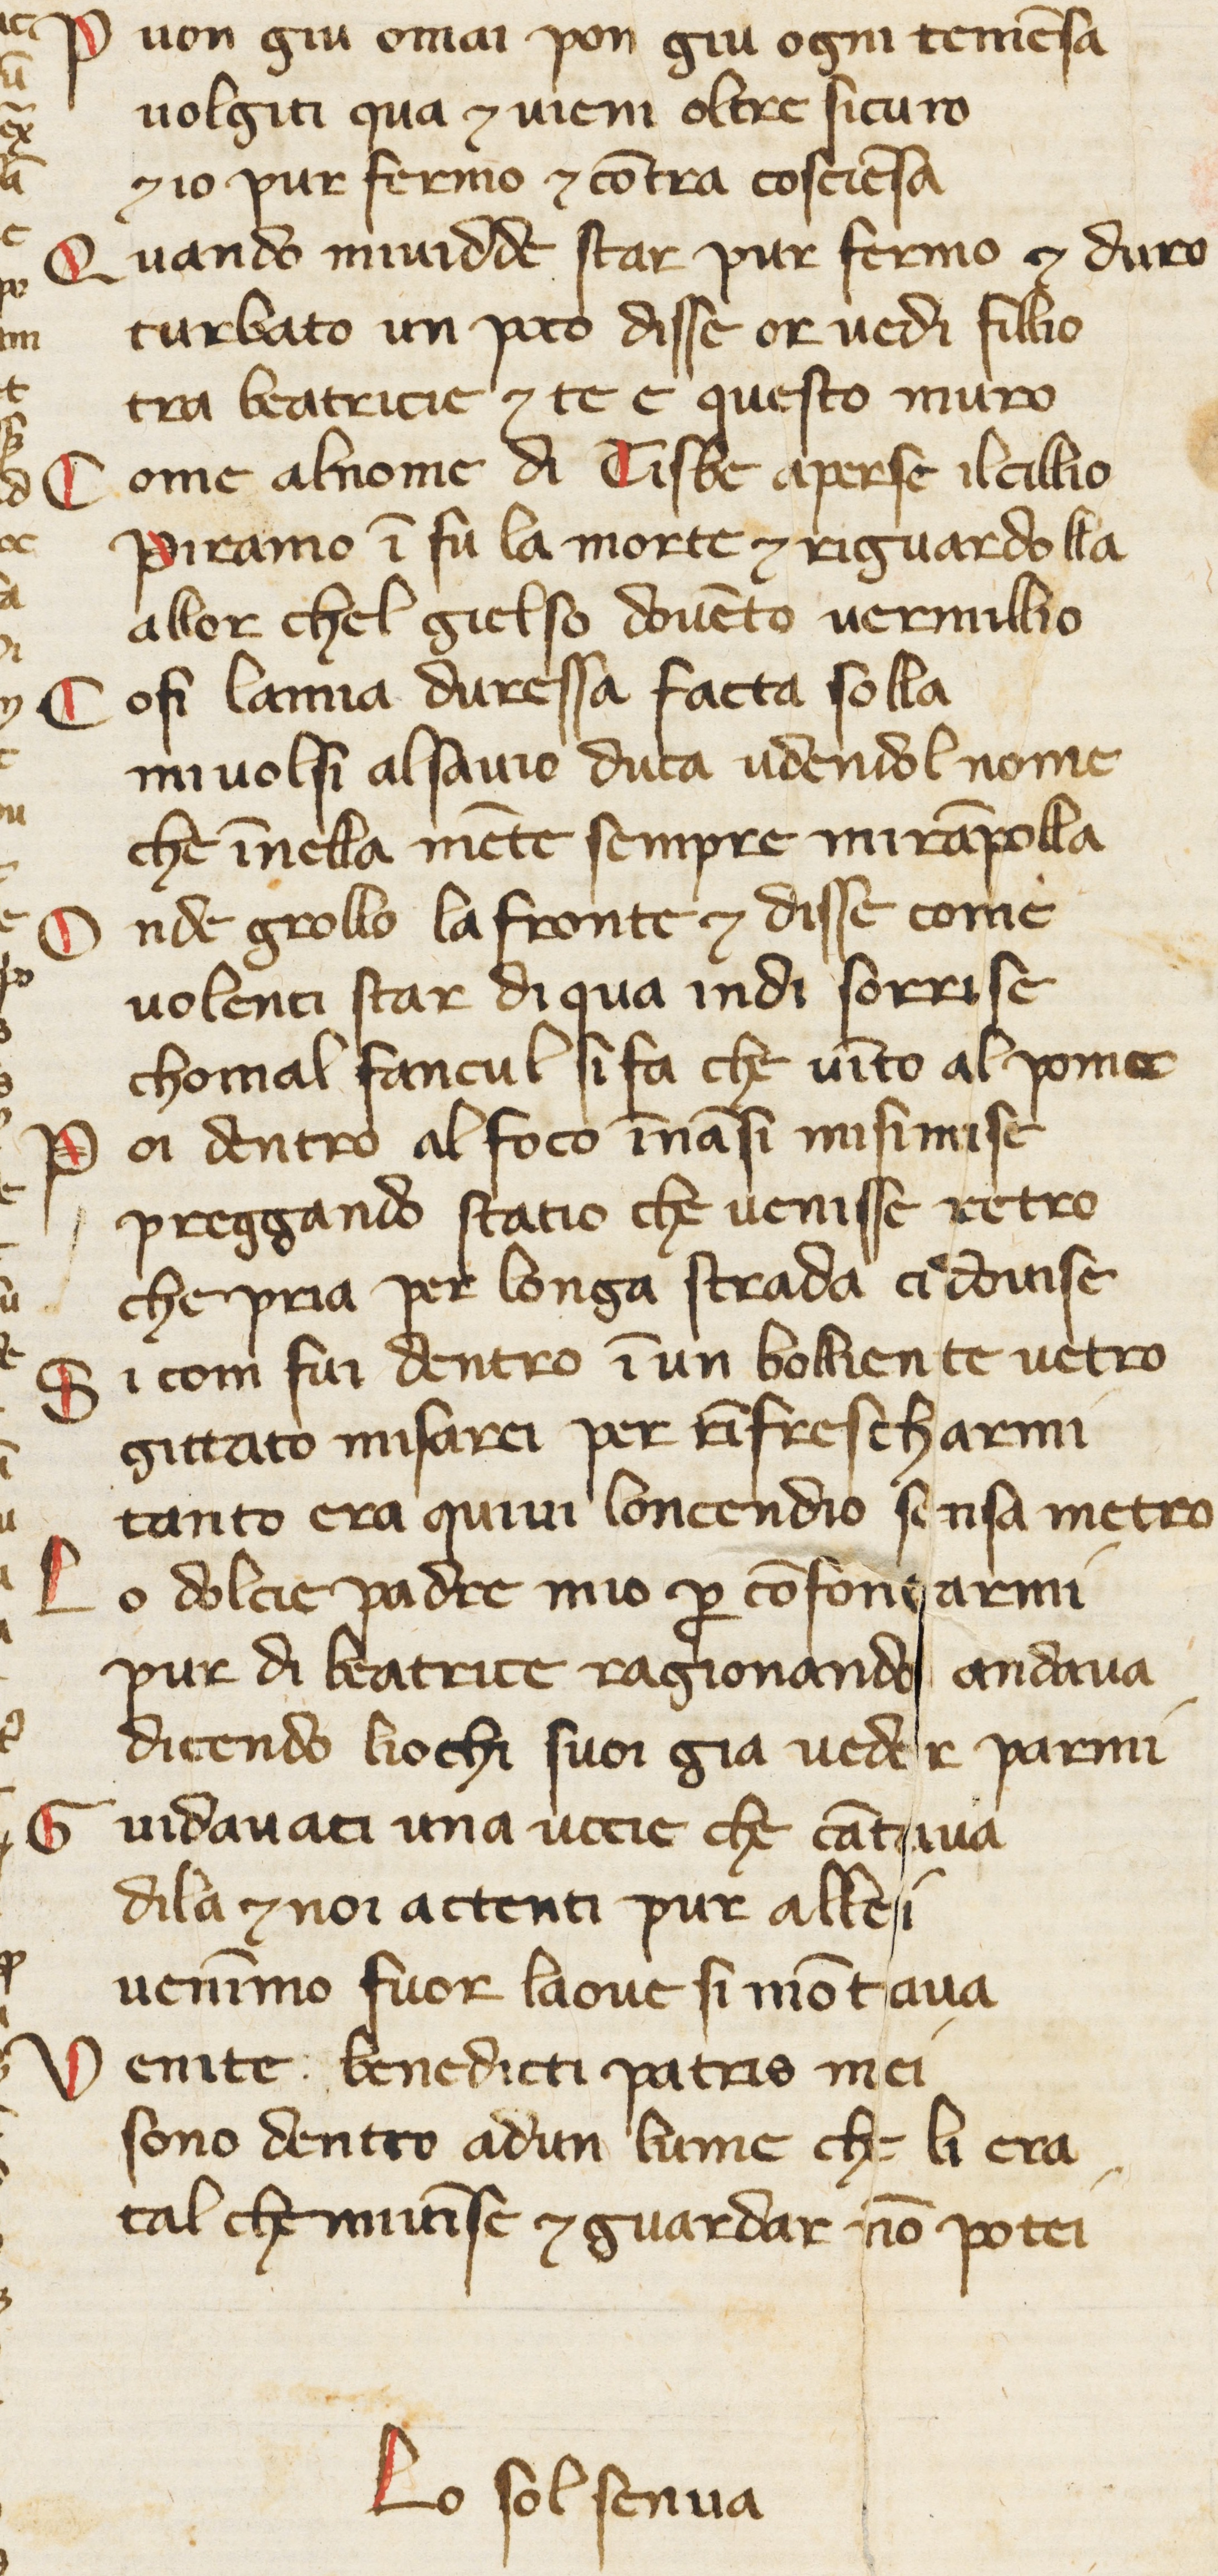 Puon giu omai pon giu ogni temēsa
uolgiti qua ⁊ uieni oltre sicuro
⁊ io pur fermo ⁊ cōtra cosciēsa
Quando miuidde star pur fermo ⁊ duro
turbato un poco disse or uedi fillio
tra beatricie ⁊ te e questo muro
Come alnome di Tisbe aperse ilcillio
piramo ī su la morte ⁊ riguardolla
allor chel gielso douēto uermillio
Cosi lamia duressa facta solla
miuolsi alsauio duca udendol nome
che īnella mēte sempre mirāpolla
Onde grollo lafronte ⁊ disse come
uolenci star diqua indi sorrise
chomal fanciul sifa che uīto al pome
Poi dentro al foco īnāsi misimise
preggando statio che uenisse retro
che pria per longa strada ci douise
Si com fui dentro ī un bolliente uetro
gittato misarei per rīfrescharmi
tanto era quiui loncendio sensa metro
Lo dolcie padre mio ꝑ cōfortarmi
pur di beatrice ragionando andaua
dicendo liochi suoi gia ueder parmi
Guidauaci una uocie che cātaua
dila ⁊ noi actenti pur allei
uenīmo fuor laoue si mōtaua
Venite. benedicti patris mei
sono dentro adun lume che li era
tal che miuīse ⁊ guardar nō potei
Lo sol senua